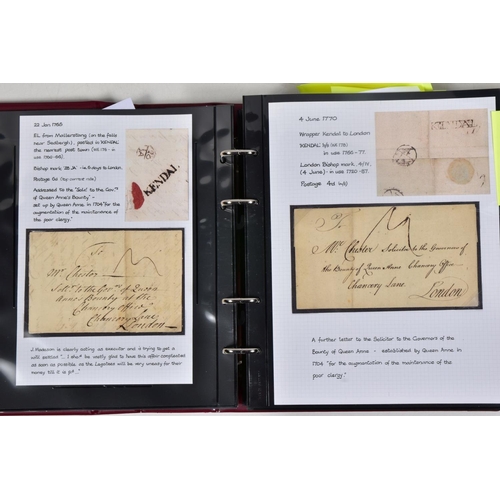 22 Jan 1768
EL from Mallerstang (on the fells
near Sedbergh), posted in KENDAL
the nearest post town
was 1766-68)
Bishop mark '28 JA' - ie 6 days to London.
Postage
Addressed to the 'Solr.' to the Govrs.
of Queen Anne's Bounty -
set up by Queen Anne in 1704 "for
the augmentation of the maintenance
of the poor clergy"
KENDAL
To
Mr. Chester
of Queen
Anns Bounty at the
Chancery Office
Chancery Lane
London
J. Mawson is clearly acting as executor and is trying to get a
will settled "... I shd. be vastly glad to have this affair compleated
as soon as possible as the Legatees will be very uneasy for their
money till it is pd. ..."
4 June 1770
Wrapper Kendal to London
KENDAL
in use 1766-77.
London Bishop mark 4/IV.
(4 June) - in use 1760-87.
Postage 4d
KENDAL
To
Mr. Chester Solicitor to the Governors of
the Bounty of Queen Anne Chancery Office
Chancery Lane
London
A further letter to the Solicitor to the Governors of the
Bounty of Queen Anne - established by Queen Anne in
1704 "for the augmentation of the maintenance of the
poor clergy."